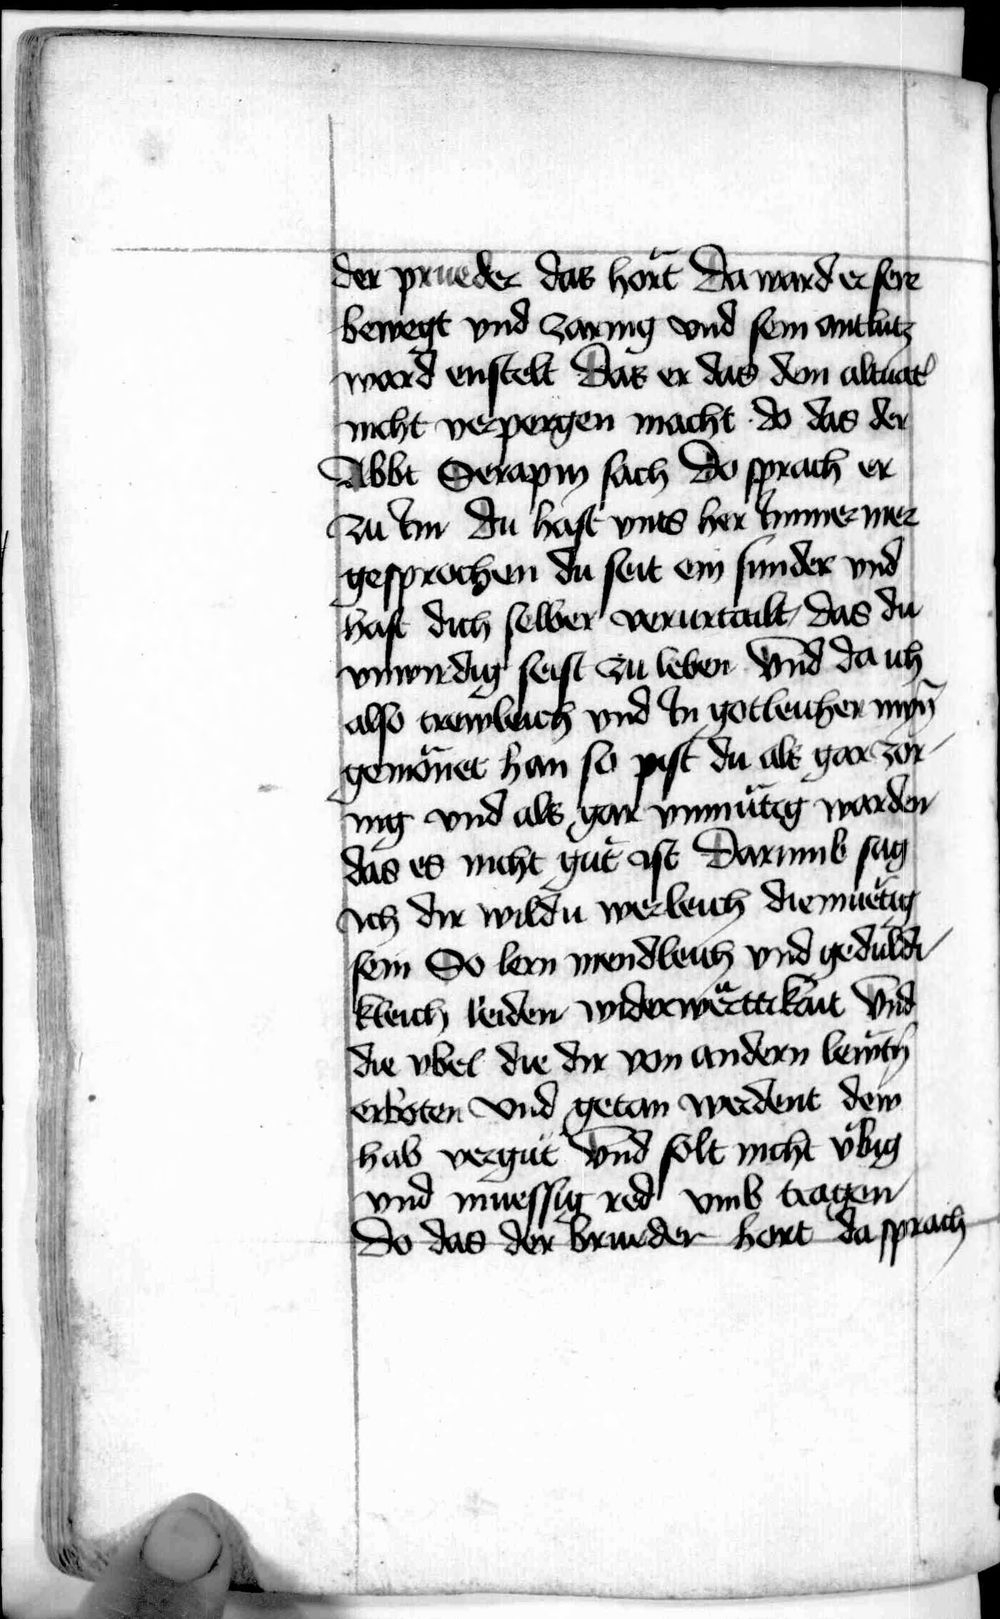 der prueder das hört Da ward er sere
bewegt vnd zarnig vnd sein antlutz
ward enstelt Das er das dem altuat'
nicht verpergen macht · do das der
Abbt Serapin sach Do sprach er
zu Im Du hast vnts her Immer mer
gesprochen du seit ein sunder vnd
hast dich selber verurtailt das du
vnwirdig seist zu leben Vnd da ich
also trewleich vnd In gotleicher myñ
gemönet han so pist du als gar zor-
nig vnd als gar vnmütig warden
das es nicht güt ist Darumb sag
ich dir wildu werleich diemuetig
sein So lern mendleich vnd geduldi-
kleich leiden widerwërttikait Vnd
die vbel die dir von andern lewtñ
erboten vnd getan werdent dew
hab vergüt Vnd solt nicht vbig
vnd muessig red vmb tragen
Do das der brueder hort da sprach